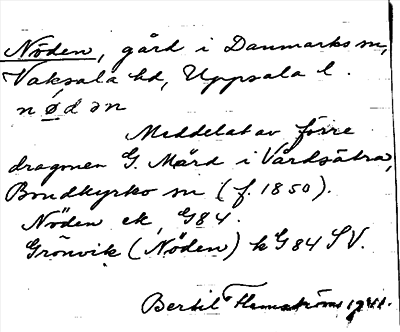 Nöden, gård i Danmarks sn,
Vaksala hd, Uppsala l.
nødən
Meddelat av förre
dragonen G. Mård i Vårdsätra,
Bondkyrko sn (f. 1850).
Nöden ek, G84.
Grönvik (Nöden) k G84 SV.
Bertil Flemström 1941.